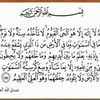 بسم الله الرحمن الرحيم
الله لا إله إلا هو الحي القيوم لا تأخذه سنة ولا نوم
له ما في السموات وما في الأرض من ذا الذي يشفع عنده
إلا بإذنه يعلم ما بين أيديهم وما خلفهم ولا
يحيطون بشيء من علمه إلا بما شاء وسع كرسيه السموات
والأرض ولا يئوده حفظهما وهو العلي العظيم
صدق الله